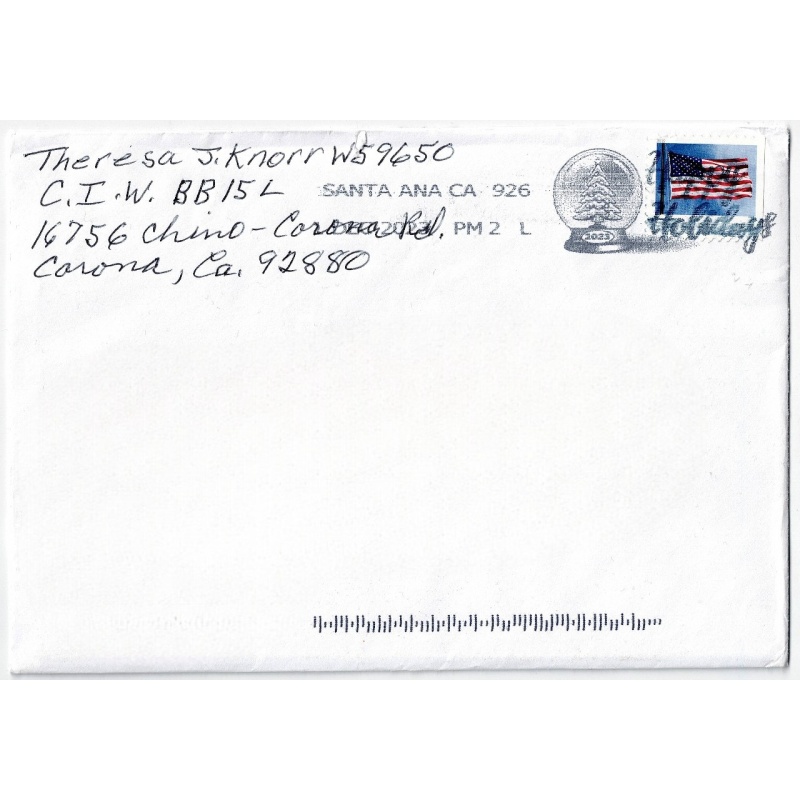 Theresa J. Knorr W59650
C.I.W. BB15L
16756 Chino-Corona Rd.
Corona, Ca. 92880
SANTA ANA CA 926
2023 PM 2 L
2023
Holidays